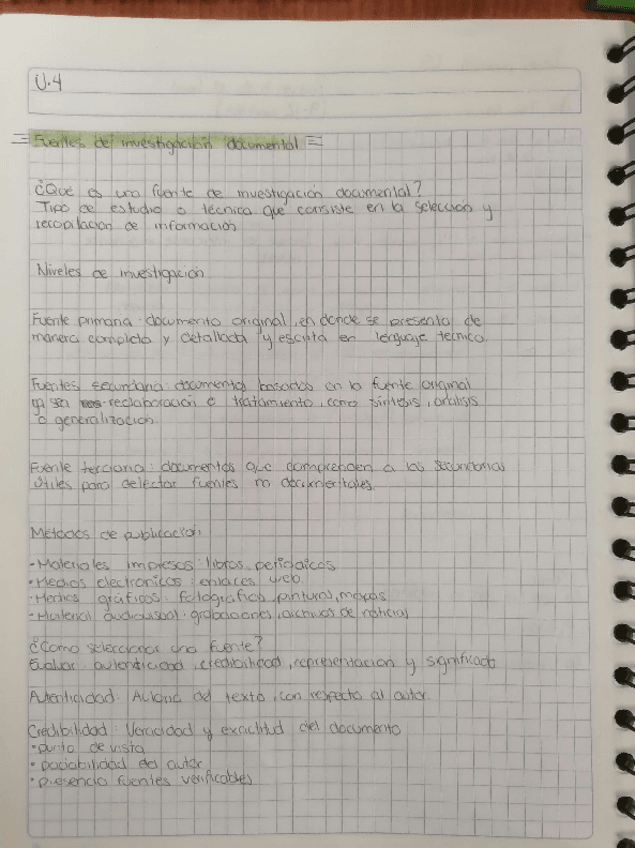 U.4
Fuentes de investigación documental
¿Que es una fuente de investigación documental?
Tipo de estudio o técnica que consiste en la selección y
recopilación de información
Niveles de investigación
Fuente primaria: documento original, en donde se presenta de
manera completa y detallada y escrita en lenguaje técnico.
Fuentes secundaria: documentos basados en la fuente original
ya sea reelaboración o tratamiento, como síntesis, análisis
o generalización
Fuente terciaria: documentos que comprenden a las secundarias
útiles para detectar fuentes documentales.
Métodos de publicación
-Materiales impresos: libros, periodicos
-Medios electronicos: enlaces web
-Medios gráficos: fotografías, pinturas, mapas
-Material audiovisual: grabaciones, archivos de noticias
¿Como seleccionar una fuente?
Evaluar autenticidad, credibilidad, representacion y significado
Autenticidad: Autoria del texto, con respecto al autor.
Credibilidad: Veracidad y exactitud del documento
•punto de vista
• del autor
•presencia fuentes verificables